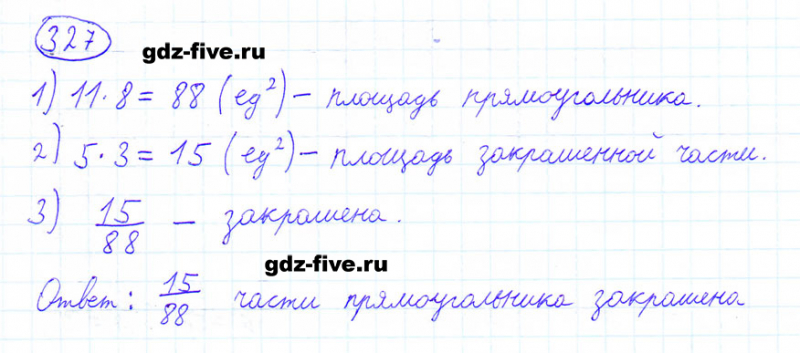 327
gdz-five.ru
1) 11 · 8 = 88 (ед²) – площадь прямоугольника.
2) 5 · 3 = 15 (ед²) – площадь закрашенной части.
3) 15/88 – закрашена.
gdz-five.ru
Ответ: 15/88 части прямоугольника закрашена